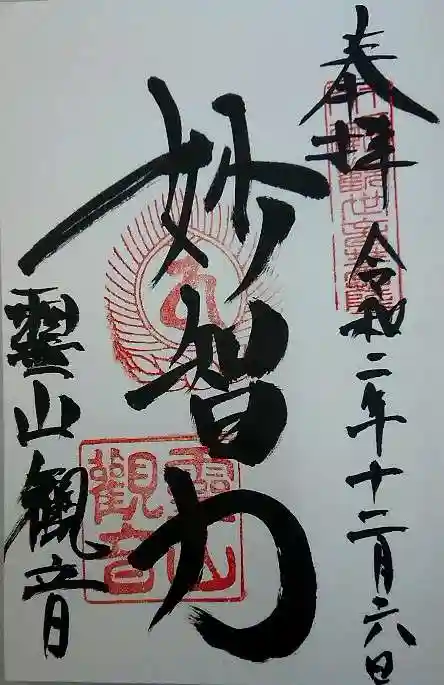 奉拝 令和二年十二月六日
妙智力
靈山観音
靈山
觀音